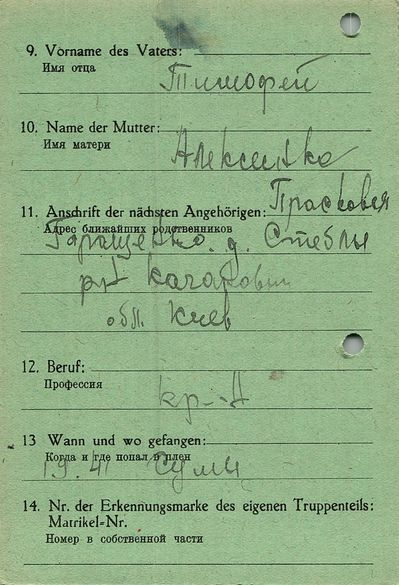 9. Vorname des Vaters:
Имя отца
Тимофей
10. Name der Mutter:
Имя матери
11. Anschrift der nächsten Angehörigen: Прасковья
Адрес ближайших родственников
д. Стеблы
обл. Киев
12. Beruf:
Профессия
13 Wann und wo gefangen:
Когда и где попал в плен
19. 41 Сумы
14. Nr. der Erkennungsmarke des eigenen Truppenteils:
Matrikel-Nr.
Номер в собственной части